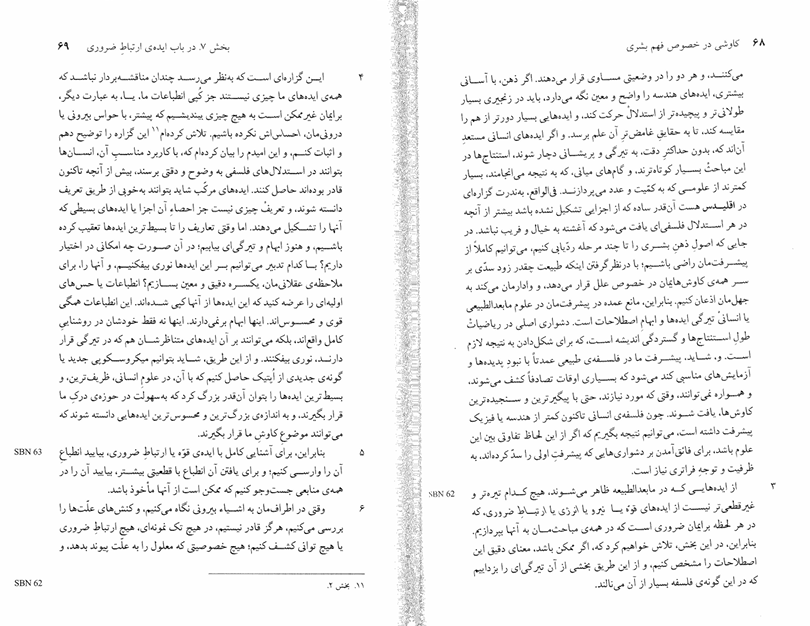 ۶۸ کاوشی در خصوص فهم بشری
می‌کننـد، و هر دو را در وضعیتی مسـاوی قرار می‌دهند. اگر ذهن، با آسانی
بیشتری، ایده‌های هندسه را واضح و معین نگه می‌دارد، باید در زنجیری بسیار
طولانی‌تر و پیچیده‌تر از استدلال حرکت کند، و ایده‌هایی بسیار دورتر از هم را
مقایسه کند، تا به حقایق غامض‌تر آن علم برسد. و اگر ایده‌های انسانی مستعدِ
آن‌اند که، بدون حداکثر دقت، به تیرگی و پریشانی دچار شوند، استنتاج‌ها در
این مباحث بسـیار کوتاه‌ترند، و گام‌های میانی، که به نتیجه می‌انجامند، بسیار
کمترند از علومـی که به کمّیت و عدد می‌پردازنـد. فی‌الواقع، به‌ندرت گزاره‌ای
در اقلیدس هست آن‌قدر ساده که از اجزایی تشکیل نشده باشد بیشتر از آنچه
در هر استدلال فلسفی‌ای یافت می‌شود که آغشته به خیال و فریب نباشد. در
جایی که اصولِ ذهن بشـری را تا چند مرحله ردّیابی کنیم، می‌توانیم کاملاً از
پیشـرفت‌مان راضی باشـیم؛ با درنظرگرفتن اینکه طبیعت چقدر زود سدّی بر
سـر همه‌ی کاوش‌هایمان در خصوص علل قرار می‌دهد، و وادارمان می‌کند به
جهل‌مان اذعان کنیم. بنابراین، مانع عمده در پیشرفت‌مان در علوم مابعدالطبیعی
یا انسانی تیرگی ایده‌ها و ابهامِ اصطلاحات است. دشواری اصلی در ریاضیات
طولِ اسـتنتاج‌ها و گستردگی اندیشه اسـت، که برای شکل‌دادن به نتیجه لازم
است. و، شـاید، پیشرفت ما در فلسفه‌ی طبیعی عمدتاً با نبودِ پدیده‌ها و
آزمایش‌های مناسبی کند می‌شود که بسـیاری اوقات تصادفاً کشف می‌شوند،
و همـواره نمی‌توانند، وقتی که مورد نیازند، حتی با پیگیرترین و سـنجیده‌ترین
کاوش‌ها، یافت شـوند. چون فلسفه‌ی انسانی تاکنون کمتر از هندسه یا فیزیک
پیشرفت داشته است، می‌توانیم نتیجه بگیریم که اگر از این لحاظ تفاوتی بین این
علوم باشد، برای فائق‌آمدن بر دشواری‌هایی که پیشرفتِ اولی را سدّ کرده‌اند، به
ظرفیت و توجهِ فراتری نیاز است.
۳ از ایده‌هایـی کـه در مابعدالطبیعه ظاهر می‌شـوند، هیچ کدام تیره‌تر و SBN 62
غیرقطعی‌تر نیست از ایده‌های قوّه یا نیرو یا انرژی یا ارتباط ضروری، که
در هر لحظه برایمان ضروری اسـت که در همه‌ی مباحث‌مـان به آنها بپردازیم.
بنابراین، در این بخش، تلاش خواهیم کرد که، اگر ممکن باشد، معنای دقیق این
اصطلاحات را مشخص کنیم، و از این طریق بخشی از آن تیرگی‌ای را بزداییم
که در این گونه‌ی فلسفه بسیار از آن می‌نالند.
بخش ۷. در باب ایده‌ی ارتباطِ ضروری ۶۹
۴ ایـن گزاره‌ای است که به‌نظر می‌رسـد چندان مناقشـه‌بردار نباشـد که
همه‌ی ایده‌های ما چیزی نیسـتند جز کُپی انطباعات ما، یـا، به عبارت دیگر،
برایمان غیرممکن اسـت به هیچ چیزی بیندیشیم که پیشتر، با حواس بیرونی یا
درونی‌مان، احساس‌اش نکرده باشیم. تلاش کرده‌ام۱۱ این گزاره را توضیح دهم
و اثبات کنـم، و این امیدم را بیان کرده‌ام که، با کاربرد مناسبِ آن، انسـان‌ها
بتوانند در استدلال‌های فلسفی به وضوح و دقتی برسند، بیش از آنچه تاکنون
قادر بوده‌اند حاصل کنند. ایده‌های مرکّب شاید بتوانند به‌خوبی از طریق تعریف
دانسته شوند، و تعریف چیزی نیست جز احصاءِ آن اجزا یا ایده‌های بسیطی که
آنها را تشـکیل می‌دهند. اما وقتی تعاریف را تا بسیط‌ترین ایده‌ها تعقیب کرده
باشـیم، و هنوز ابهام و تیرگی‌ای بیابیم؛ در آن صـورت چه امکانی در اختیار
داریم؟ بـا کدام تدبیر می‌توانیم بـر این ایده‌ها نوری بیفکنیـم، و آنها را، برای
ملاحظه‌ی عقلانی‌مان، یکسـره دقیق و معین بسـازیم؟ انطباعات یا حس‌های
اولیه‌ای را عرضه کنید که این ایده‌ها از آنها کپی شـده‌اند. این انطباعات همگی
قوی و محسوس‌اند. اینها ابهام برنمی‌دارند. اینها نه فقط خودشان در روشنایی
کامل واقع‌اند، بلکه می‌توانند بر آن ایده‌های متناظرشان هم که در تیرگی قرار
دارنـد، نوری بیفکنند. و از این طریق، شـاید بتوانیم میکروسـکوپی جدید یا
گونه‌ی جدیدی از اُپتیک حاصل کنیم که با آن، در علوم انسانی، ظریف‌ترین، و
بسـیط‌ترین ایده‌ها را بتوان آن‌قدر بزرگ کرد که به‌سهولت در حوزه‌ی درکِ ما
قرار بگیرند، و به اندازه‌ی بزرگ‌ترین و محسوس‌ترین ایده‌هایی دانسته شوند که
می‌توانند موضوعِ کاوشِ ما قرار بگیرند.
۵ بنابراین، برای آشنایی کامل با ایده‌ی قوّه یا ارتباط ضروری، بیایید انطباع SBN 63
آن را وارسـی کنیم؛ و برای یافتن آن انطباع با قطعیتی بیشـتر، بیایید آن را در
همه‌ی منابعی جست‌وجو کنیم که ممکن است از آنها مأخوذ باشد.
۶ وقتی در اطراف‌مان به اشـیاءِ بیرونی نگاه می‌کنیم، و کنش‌های علّت‌ها را
بررسی می‌کنیم، هرگز قادر نیستیم، در هیچ تک نمونه‌ای، هیچ ارتباطِ ضروری
یا هیچ توانی کشـف کنیم؛ هیچ خصوصیتی که معلول را به علّت پیوند بدهد، و
۱۱. بخش ۲. SBN 62